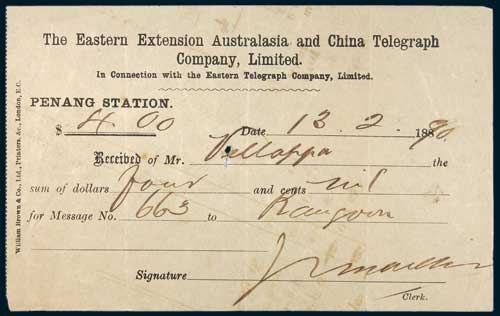 The Eastern Extension Australasia and China Telegraph
Company, Limited.
In Connection with the Eastern Telegraph Company, Limited.
PENANG STATION.
$ 4 00 Date 13. 2. 1890.
Received of Mr. Vellappa the
sum of dollars four and cents nil
for Message No. 663 to Rangoon
Signature
Clerk.
William Brown & Co., Ltd., Printers, &c., London, E.C.